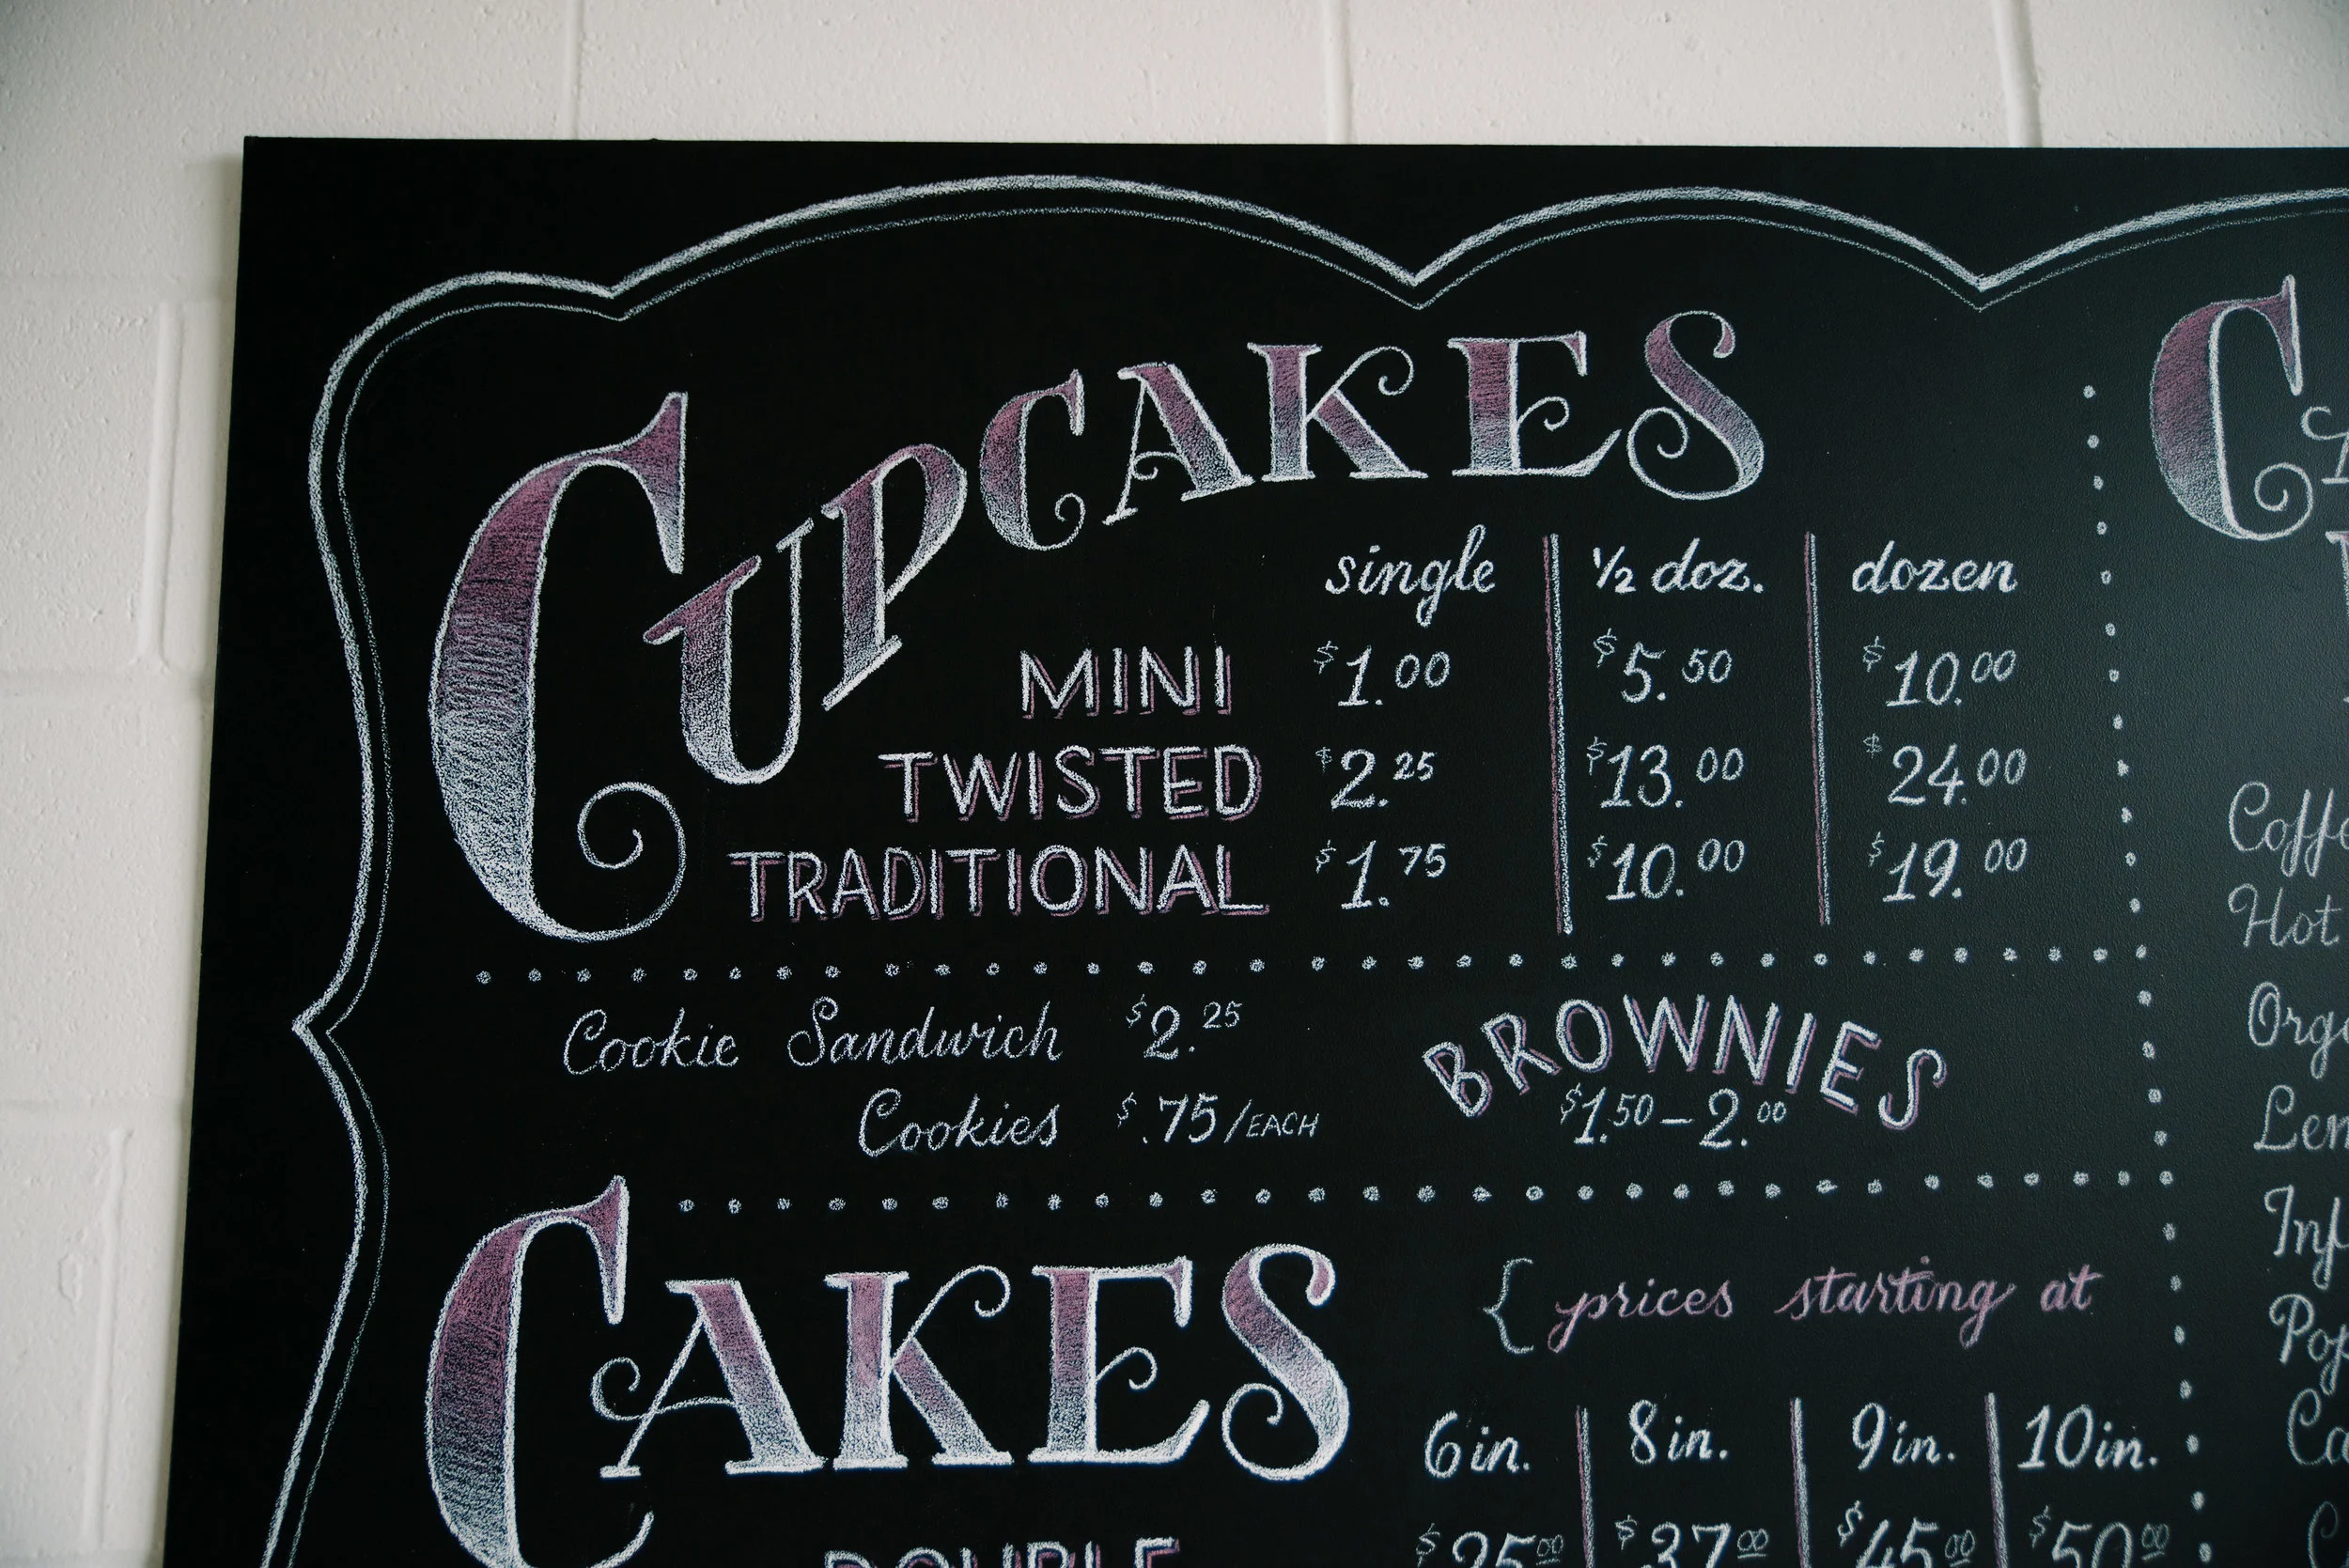 CUPCAKES
single ½ doz. dozen
MINI $1.00 $5.50 $10.00
TWISTED $2.25 $13.00 $24.00
TRADITIONAL $1.75 $10.00 $19.00
Cookie Sandwich $2.25
Cookies $.75/EACH
BROWNIES
$1.50-2.00
CAKES
{ prices starting at
6in. 8in. 9in. 10in.
DOUBLE $25.00 $37.00 $45.00 $50.00
Hot